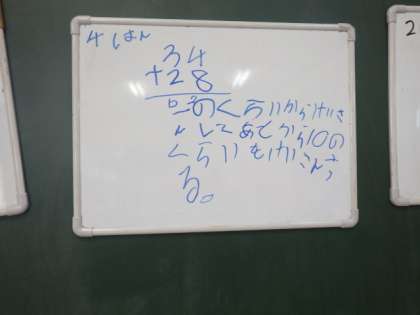 4 しはん
34
+28
一のくらいからけいさ
んしてあとから10の
くらいをけいさんす
る。
2